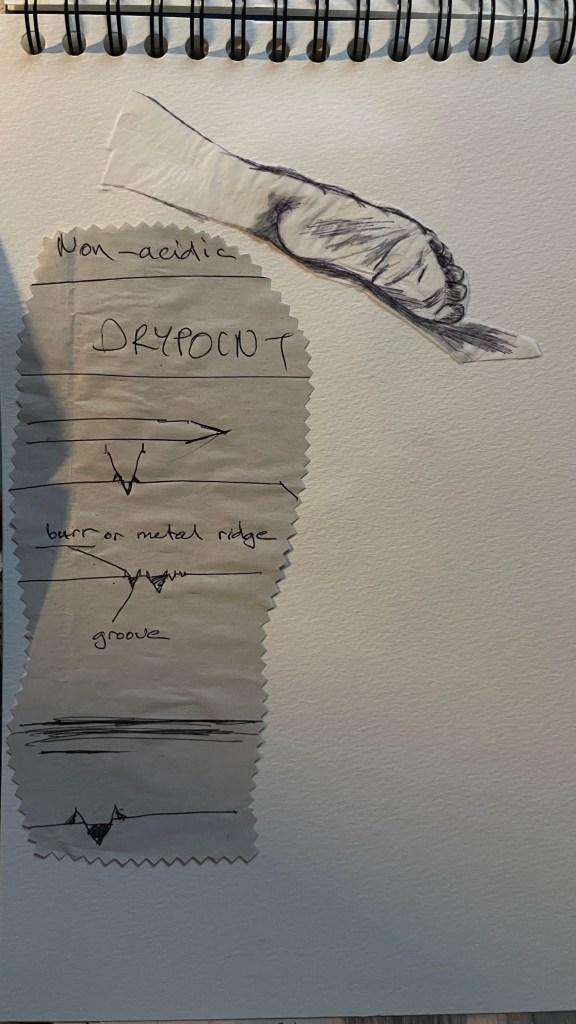 Non-acidic
DRYPOINT
burr or metal ridge
groove